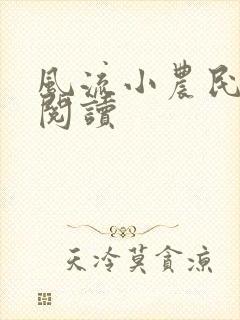 風流小農民
閱讀
天冷莫貪涼